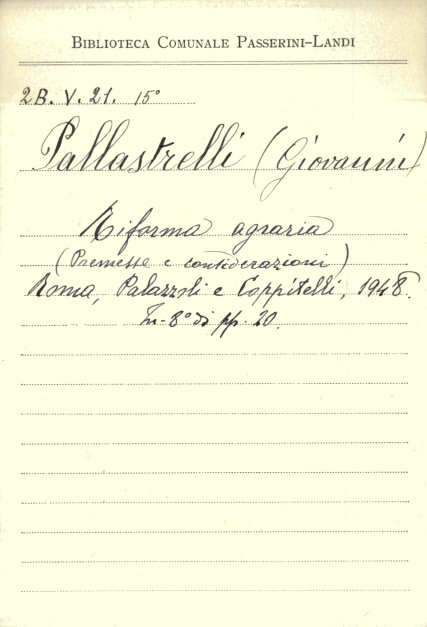 BIBLIOTECA COMUNALE PASSERINI-LANDI
2B. V. 21. 15°
Pallastrelli (Giovanni)
Riforma agraria
(Premesse e considerazioni)
Roma, Palazzoli e Coppitelli, 1948.
In-8° di pp. 20.